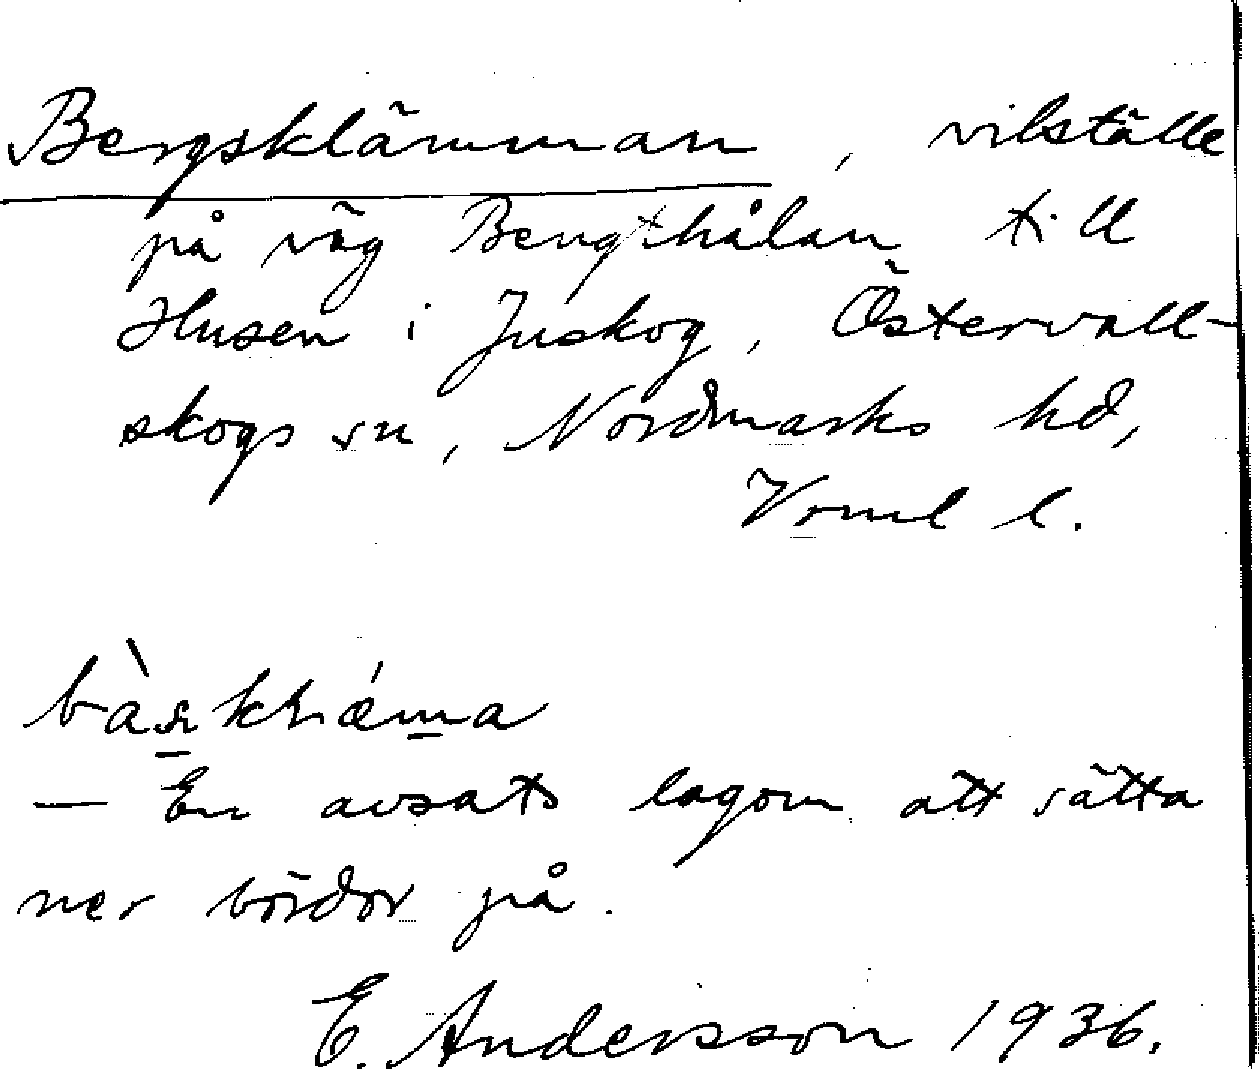 Bergsklämman, vilställe
på väg Bengthålan till
Husen i Juskog, Östervall-
skogs sn, Nordmarks hd,
Vrml l.
— En avsats lagom att sätta
ner bördor på.
E. Andersson 1936.